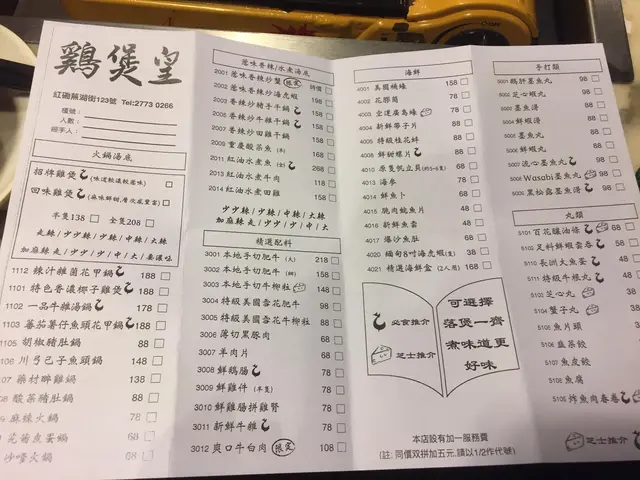 鷄煲皇
紅磡蕪湖街123號 Tel:2773 0266
檯號：
人數：
經手人：
火鍋湯底
招牌雞煲
四味雞煲
半隻138 全隻208
走辣/少少辣/少辣/中辣/大辣
1112 辣汁雜菌花甲鍋 188
1101 特色香濃椰子雞煲 188
1102 一品牛雜湯鍋 178
1103 蕃茄薯仔魚頭花甲鍋 188
1105 胡椒豬肚鍋 88
106 川弓已子魚頭鍋 148
107 藥材畔雞鍋 138
108 酸菜豬肚鍋 88
麻辣火鍋 78
芫茜皮蛋鍋 68
沙嗲火鍋 68
葱味香辣/水煮湯底
2001 葱味香辣炒蟹 限定 時價
2002 葱味香辣炒海虎蝦 198
2003 香辣炒豬手牛鍋 158
2005 香辣炒牛雜牛鍋 158
2007 香辣炒田雞干鍋
2009 重慶酸菜魚 168
2011 紅油水煮魚 268
2013 紅油水煮牛肉 118
2014 紅油水煮田雞 158
少少辣/少辣/中辣/大辣
加麻辣走/少少/少/中/大
精選配料
3001 本地手切肥牛 (大) 218
3002 本地手切肥牛 158
3003 本地手切牛柳粒 148
3004 特級美國雪花肥牛 98
3005 特級香濃牛柳粒 88
3006 薄切黑豚肉 68
3007 羊肉片 68
3008 鮮鵝腸 68
3009 鮮雞件 (半隻) 78
3010 鮮雞腸拼雞腎 78
3011 新鮮牛雜 78
3012 爽口牛白肉 限定 108
海鮮
4001 美國桶蠔 158
4002 花膠筒 78
4003 金運廣島蠔 78
4004 新鮮帶子片 88
4005 特級桂花蚌 88
4008 鮮甜螺片 88
4010 原隻帆立貝(約5-6隻) 68
4013 海參 78
4014 鮮魚卜 68
4015 脆肉鯇魚片 58
4016 新鮮魚雲 48
4017 爆沙魚肚 68
4020 緬甸8吋海虎蝦(隻) 38
4021 精選海鮮盒 (2人用) 168
必食推介
芝士推介
可選擇
落煲一齊
煮味道更
好味
本店設有加一服務費
(註: 同價双拼加五元,請以1/2作代號)
手打類
5001 鵝肝墨魚丸 98
5002 芝心蝦丸 88
5003 墨魚滑 88
5004 鮮蝦滑 88
5005 墨魚丸 88
5006 鮮蝦丸 88
5007 流心墨魚丸 98
5008 Wasabi墨魚丸 98
5009 黑松露墨魚滑 98
丸類
5101 百花釀油條 68
5102 足料鮮蝦雲吞 58
5110 長洲大魚蛋
5111 特級牛根丸
5102 芝心丸
5104 蟹子丸
5106 魚片頭
5106 韭菜餃
5107 魚皮餃
5108 魚腐
5109 炸魚肉春卷
芝士推介